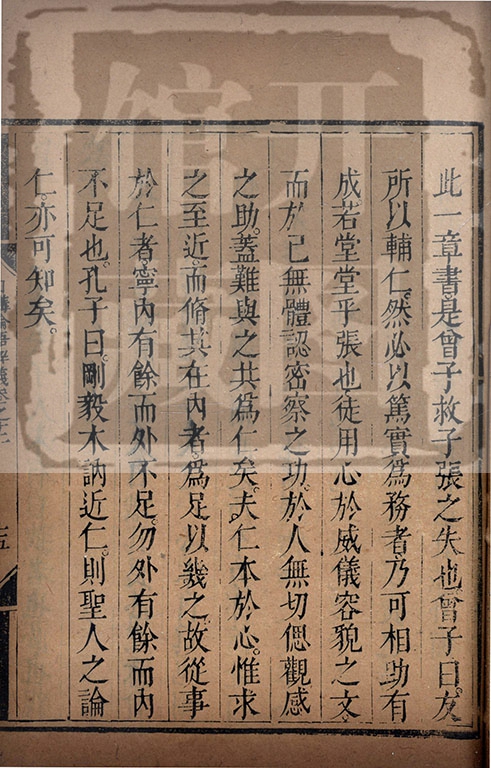 此一章書是曾子救子張之失也曾子曰友
所以輔仁然必以篤實為務者乃可相助有
成若堂堂乎張也徒用心於威儀容貌之文
而於己無體認密察之功於人無切偲觀感
之助蓋難與之共為仁矣夫仁本於心惟求
之至近而脩其在內者為足以幾之故從事
於仁者寧內有餘而外不足勿外有餘而內
不足也孔子曰剛毅木訥近仁則聖人之論
仁亦可知矣